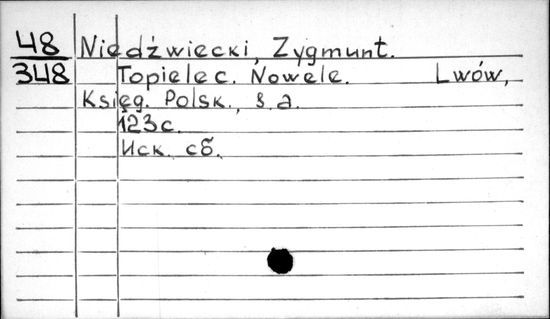 48 Niedźwiecki, Zygmunt.
348 Topielec. Nowele. Lwów,
Księg. Polsk., s.a.
123 с.
Иск. сб.